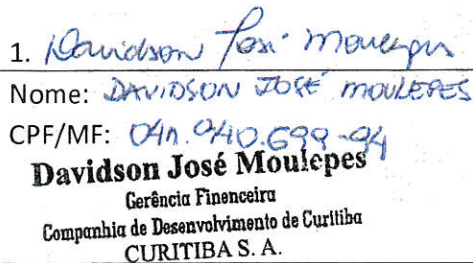 1. Davidson José Moulepes
Nome: DAVIDSON JOSÉ MOULEPES
CPF/MF: 041.040.699-94
Davidson José Moulepes
Gerência Finenceira
Companhia de Desenvolvimento de Curitiba
CURITIBA S. A.